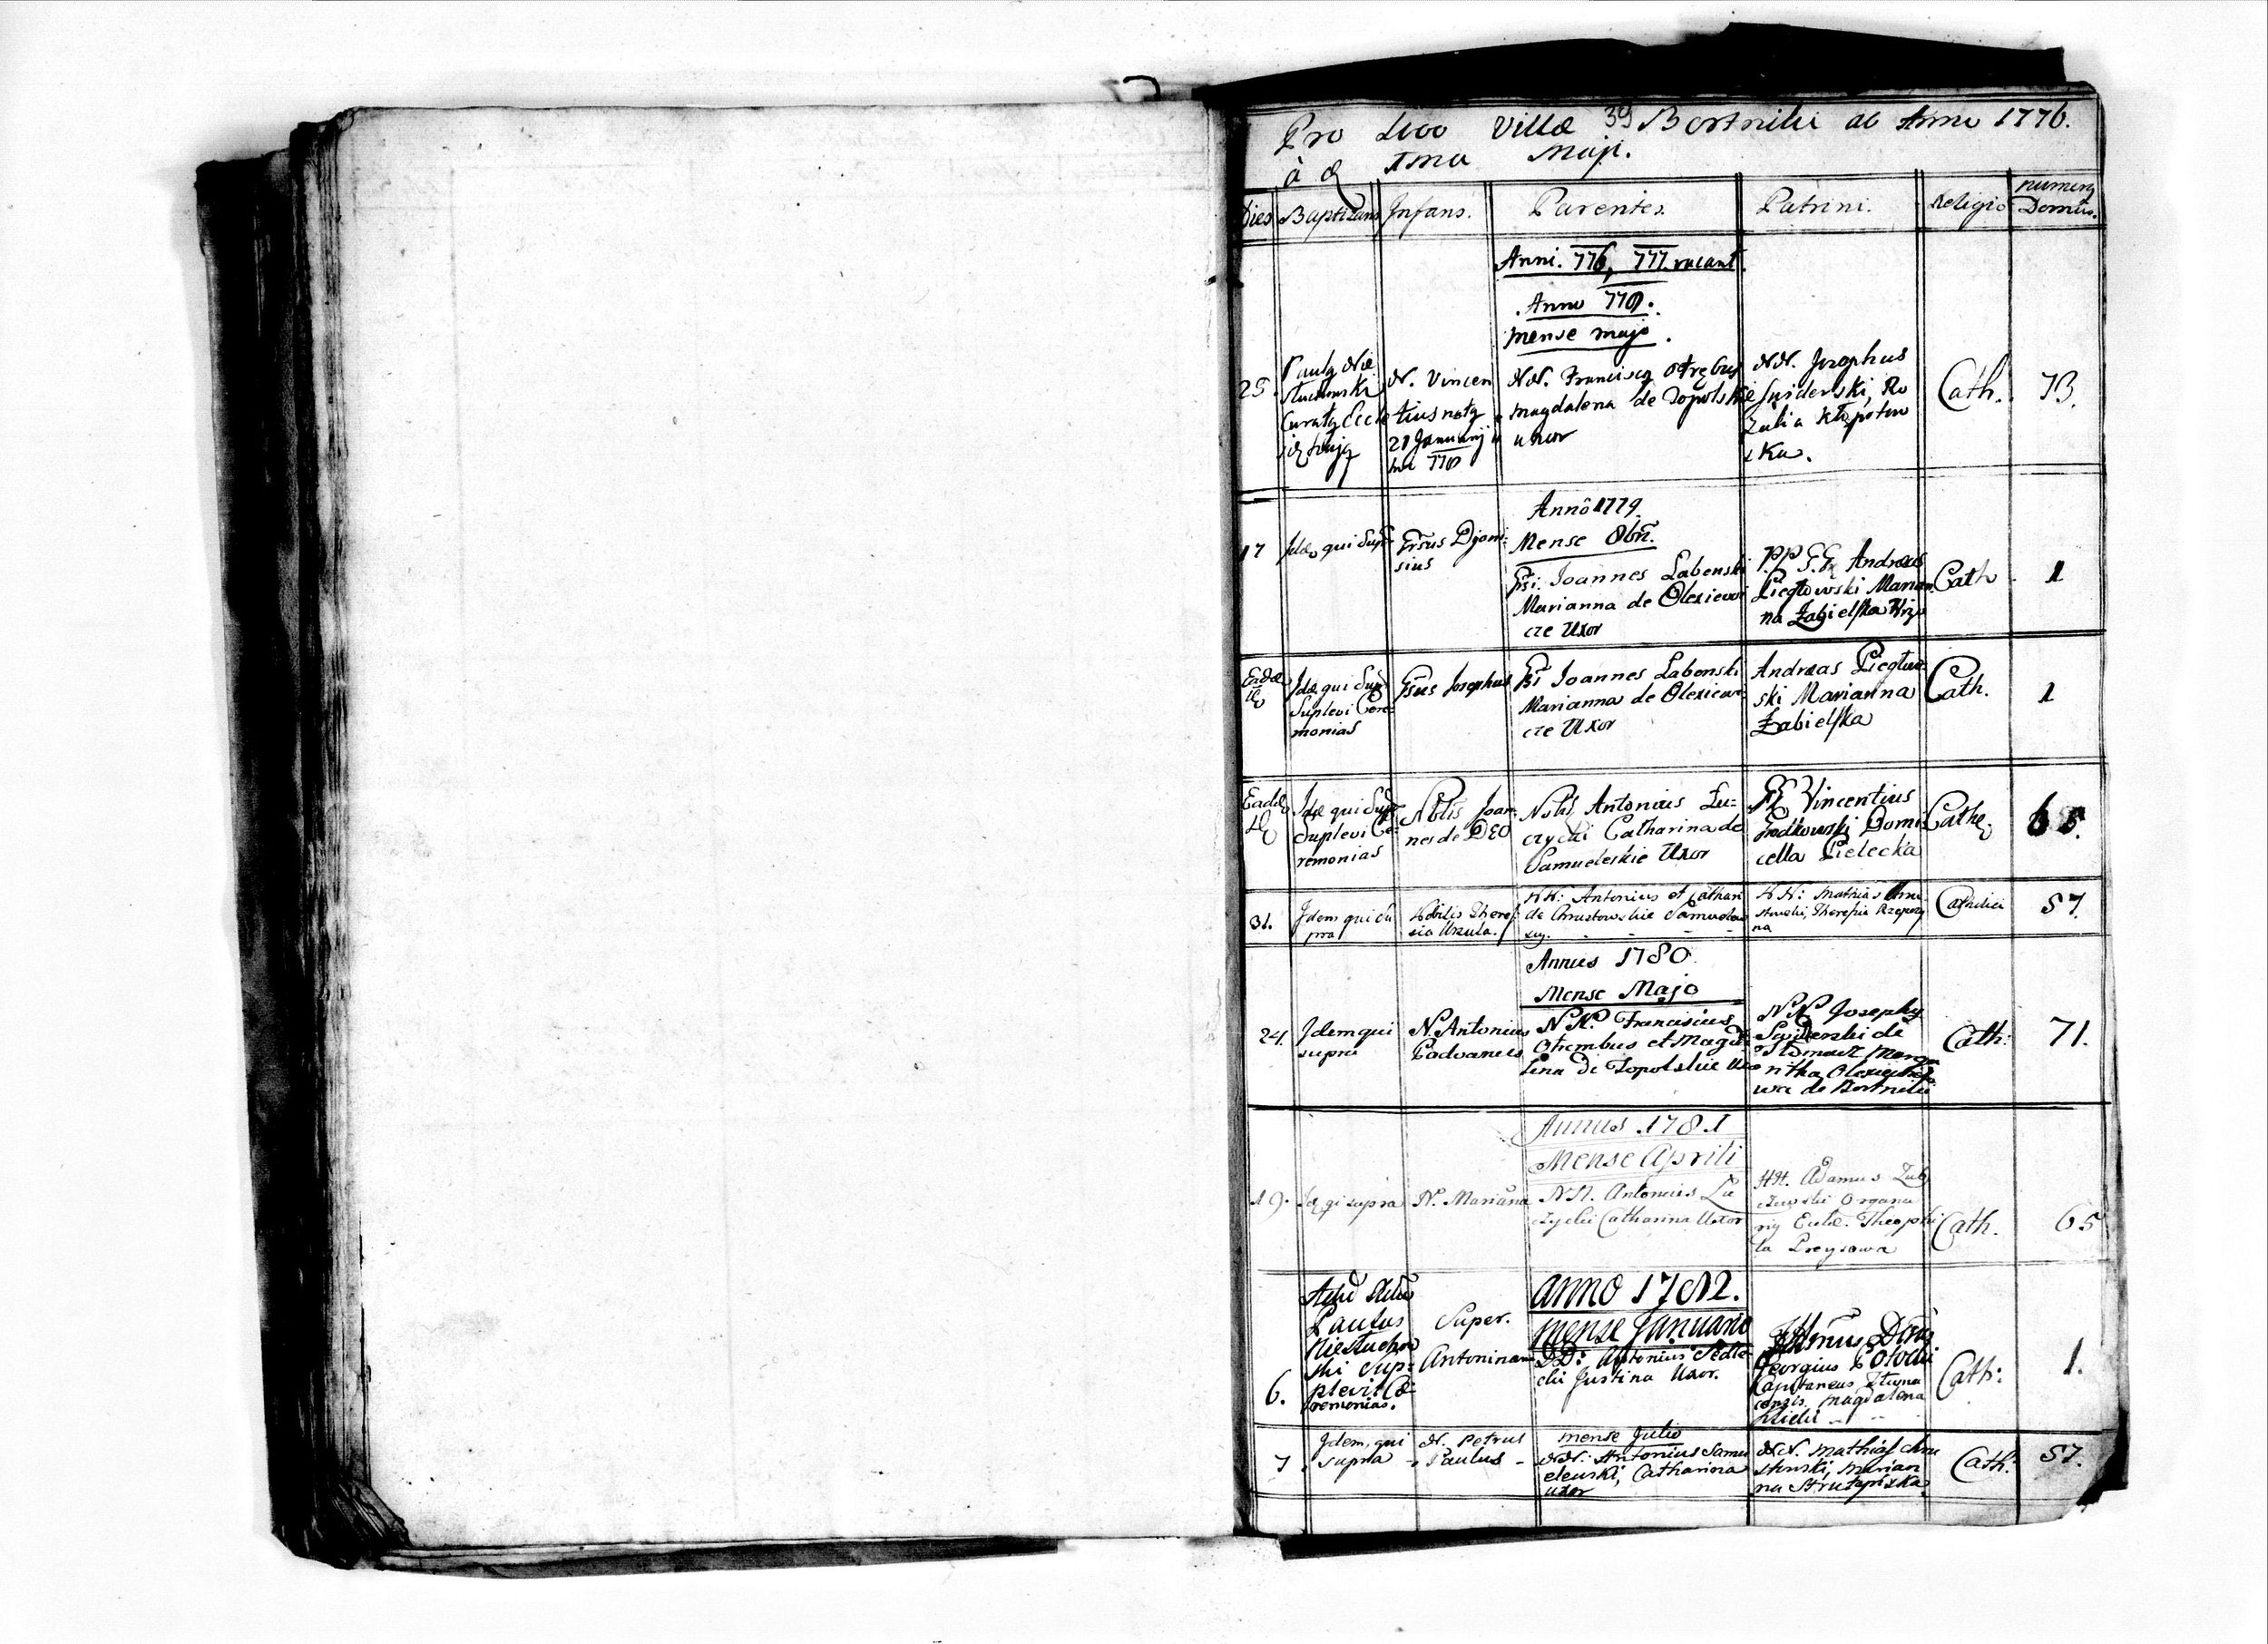 39
Pro Libro Villæ Bortniki ab Anno 1776.
à d 1ma Maji.
Dies Baptizans Infans. Parentes. Patrini. Religio numerq Domûs.
Anni. 776, 777 vacant.
Anno 778.
mense majo.
25.
Paulq Nie
słuchowski
Curatq Eccle
N. Vincen
tius natq
21 Januarij
778
NN. Franciscq Otrębus
magdalena de Topolskie
uxor
NN. Josephus
Swiderski, Ro
zalia Kłopotow
ska.
Cath.
73.
Annô 1779.
Mense Obri.
17
qui Supr
Grsus Dyoni:
sius
Gsi. Joannes Labenski
Marianna de Olexiewi
cze Uxor
PP. G.G. Andreas
Piegłowski Marian
na Zabielska
Cath
1
Eadem
Idem qui Supr
Suplevi Cere:
monias
Gsus Josephus
Gsi Joannes Labenski
Marianna de Olexiewi
cze Uxor
Andreas Piegłow:
ski Marianna
Zabielska
Cath.
1
Eadem
Idem qui Supr
Suplevi Ce:
remonias
Nblis Joan:
nes de DEO
Nobiles Antonius Lu=
czycki Catharina de
Samueleskie Uxor
Vincentius
Domi
cella Bielecka
Cath
65.
31.
Idem qui su
pra
Nobilis There
sia Ursula.
NN: Antonius et Cathari
de Chrustowskie Samuelow
scy.
NN: Mathias Chru
stowski, Theresia Rzepeczy
na
Catholici
57.
Annus 1780.
Mense Majo
24.
Idem qui
supra
N. Antonius
Padvanus
NN. Franciscus
Otrembus et Magda
lena de Topolskie Uxo
NN Josephq
Swiderski de
Tłomacz Marga
ritha Olexiewiczo
wa de Bortniki
Cath:
71.
Annus 1781
Mense Aprili
19.
Id qi supra
N. Mariana
NN. Antonius Lu
czycki Catharina Uxor
NN. Adamus Zub
czewski Organa
riq Eccle. Theophi
la Preysowa
Cath.
65
anno 1782.
mense Januario
6.
Adm Rdus
Paulus
Niesłuchow
ski sup=
plevit Cæ
remonias.
Super.
Antoninam
DD: Antonius Siedle
cki Justina Uxor.
Illmus Dnus
Georgius Potocki
Capitaneus Tłuma
censis. Magdalena
Cath:
1.
mense Julio
7.
Idem qui
supra
N. Petrus
Paulus
NN: Antonius Samu
elewski, Catharina
uxor
NN. Mathias Chru
stowski, Marian
na Strutyńska.
Cath:
57.